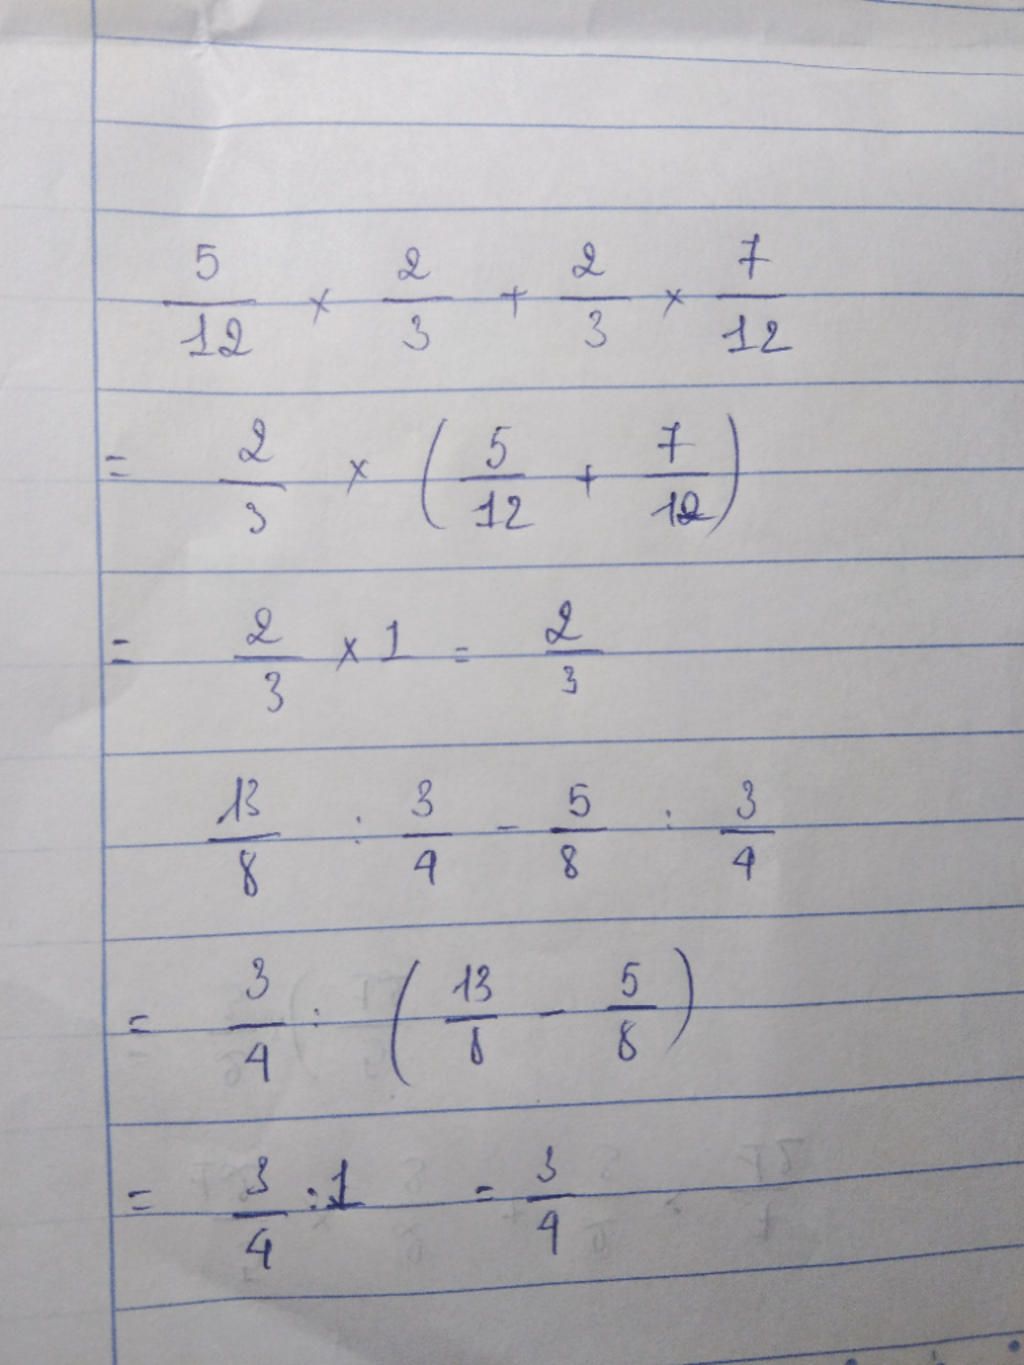 5/12 × 2/3 + 2/3 × 7/12
= 2/3 × (5/12 + 7/12)
= 2/3 × 1 = 2/3
13/8 : 3/4 - 5/8 : 3/4
= 3/4 : (13/8 - 5/8)
= 3/4 : 1 = 3/4